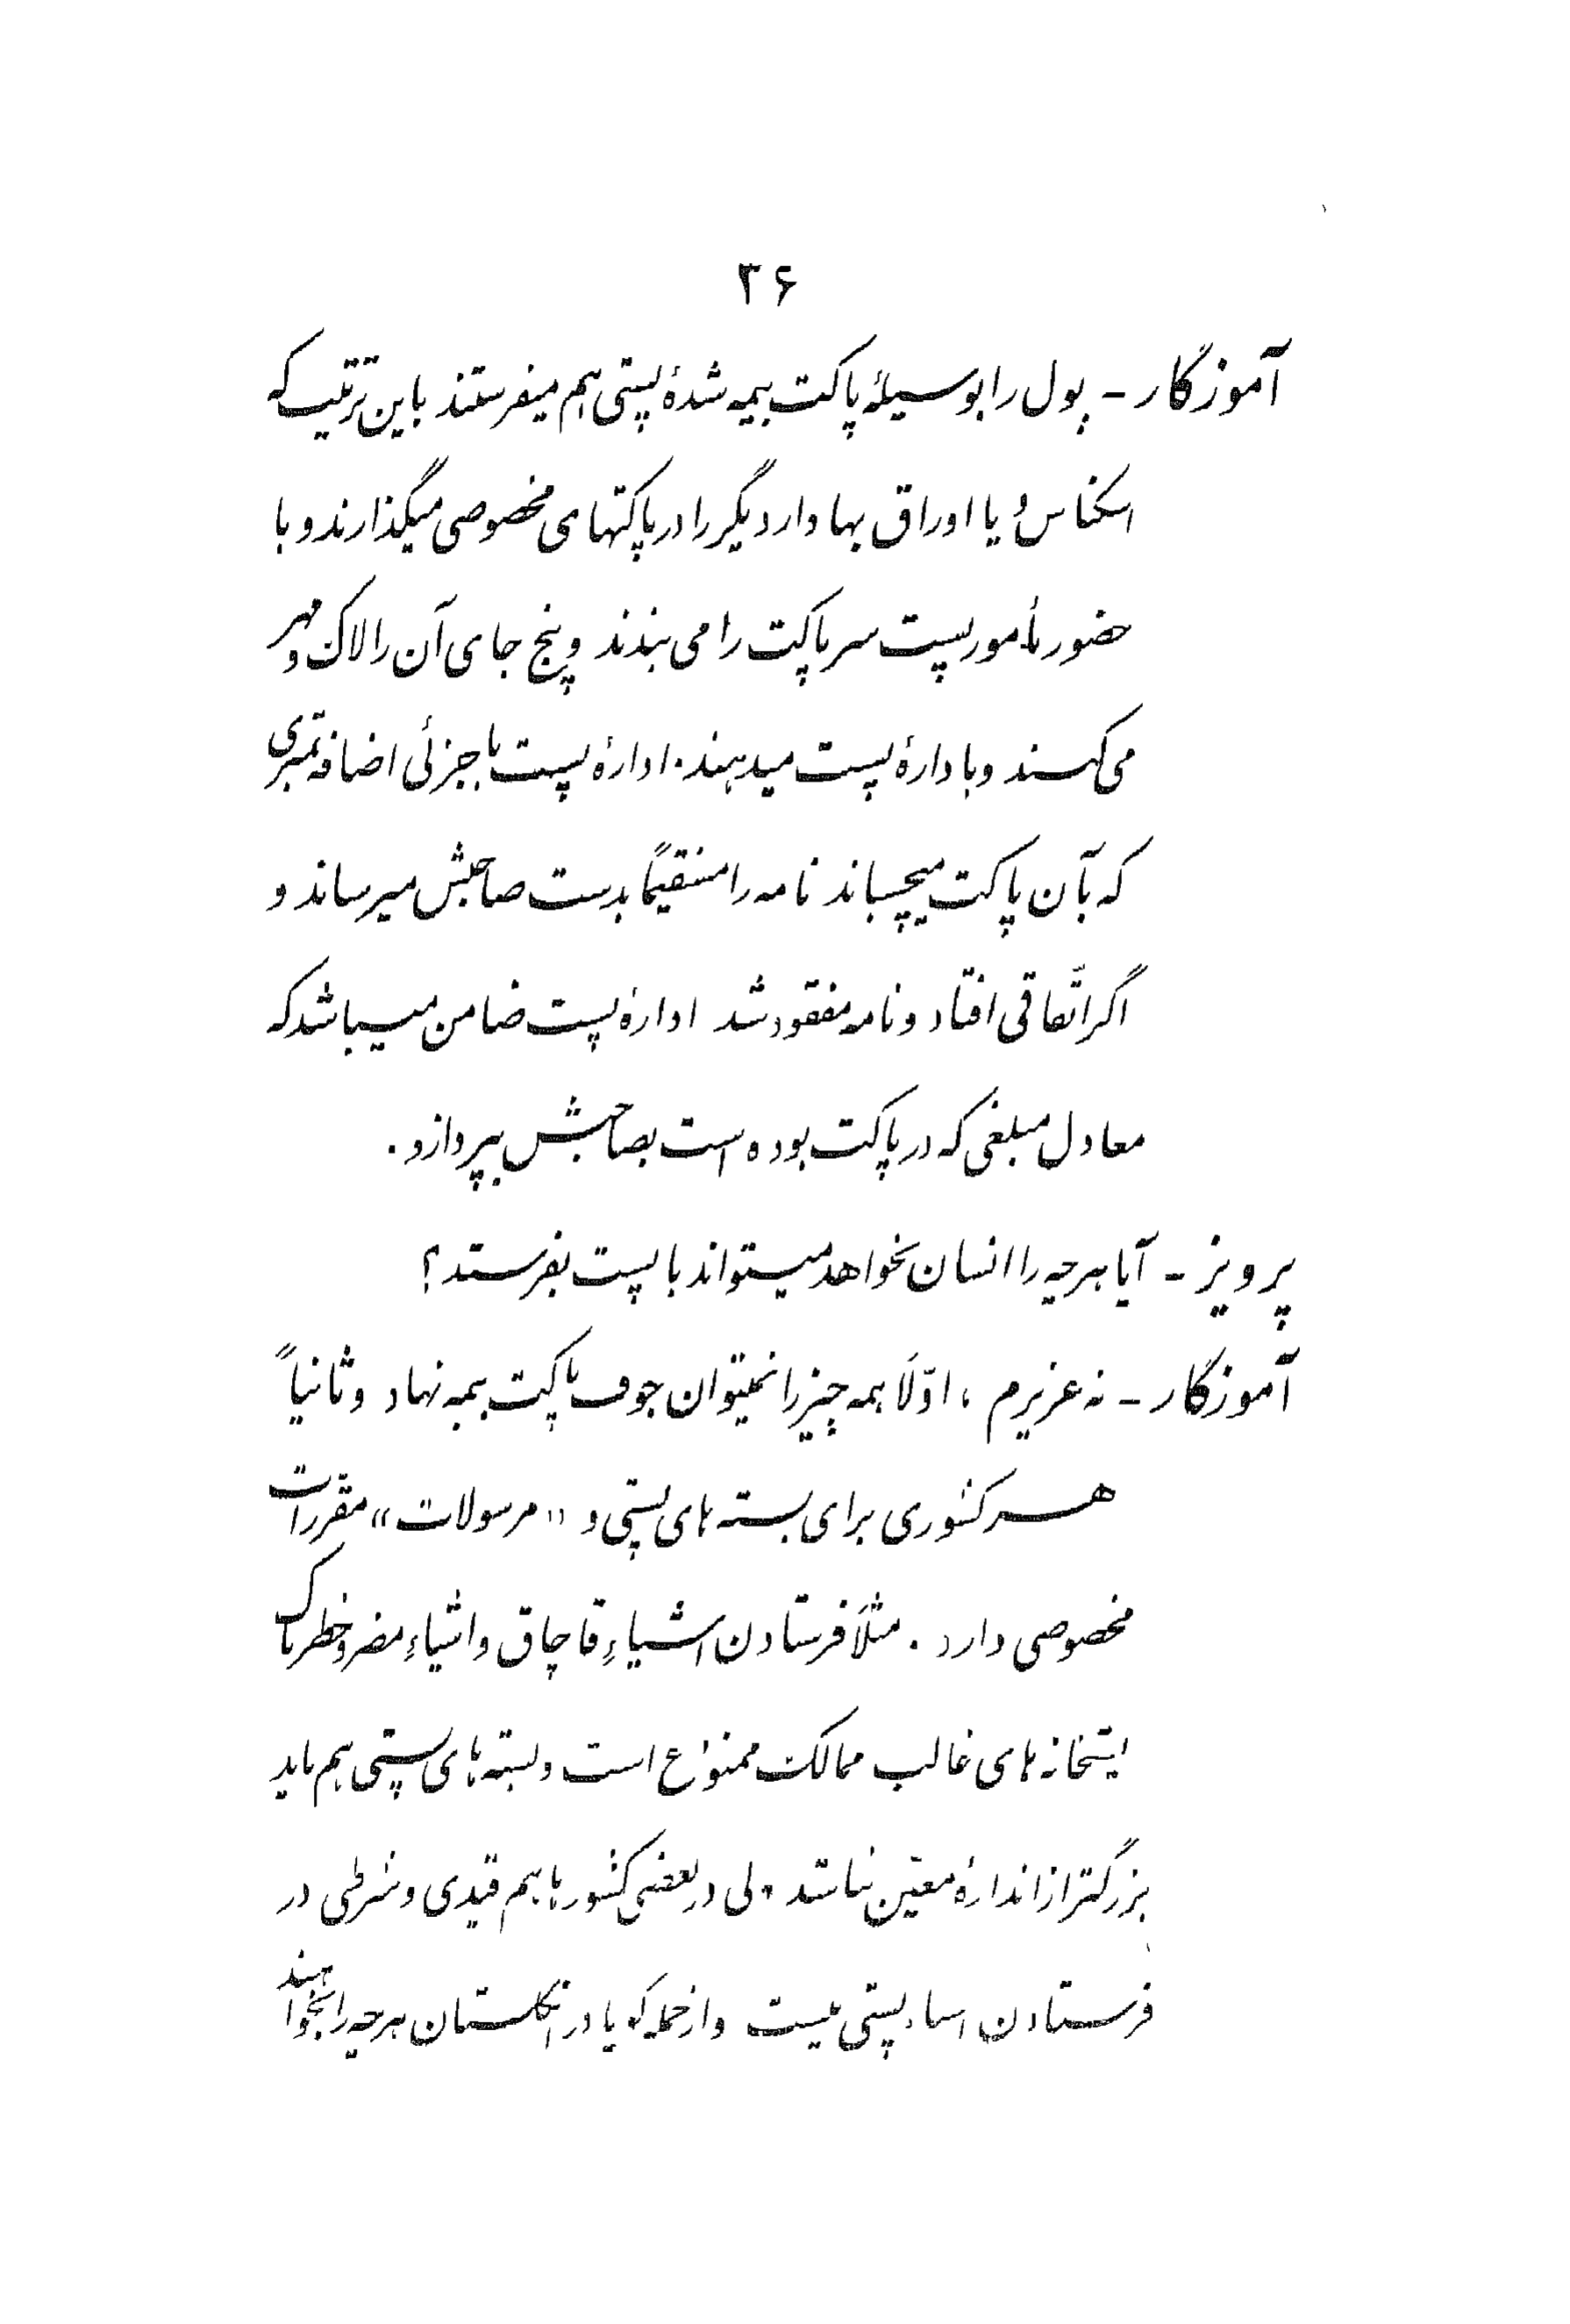 ۳۶
آموزگار - پول را بوسیلهٔ پاکت بیمه شدهٔ پستی هم میفرستند باین ترتیب که
اسکناس یا اوراق بهادار دیگر را در پاکتهای مخصوصی میگذارند و با
حضور مأمور پست سر پاکت را می بندند و پنج جای آن را لاک و مهر
می کنند و بادارهٔ پست میدهند. ادارهٔ پست با جزئی اضافه تمبری
که بآن پاکت میچسباند نامه را مستقیماً بدست صاحبش میرساند و
اگر اتّفاقی افتاد و نامه مفقود شد ادارهٔ پست ضامن میباشد که
معادل مبلغی که در پاکت بوده است بصاحبش بپردازد.
پرویز - آیا هرچه را انسان بخواهد میتواند با پست بفرستد؟
آموزگار - نه عزیزم، اوّلاً همه چیز را نمیتوان جوف پاکت بیمه نهاد و ثانیاً
هر کشوری برای بسته های پستی و «مرسولات» مقررات
مخصوصی دارد. مثلاً فرستادن اشیاءِ قاچاق و اشیاءِ مضر و خطرناک
پستخانه های غالب ممالک ممنوع است و بسته های پستی هم باید
بزرگتر از اندازهٔ معیّن نباشد ولی در بعضی کشورها هم قیدی و شرطی در
فرستادن اشیاء پستی نیست و از جمله گویا در انگلستان هرچه را بخواهند